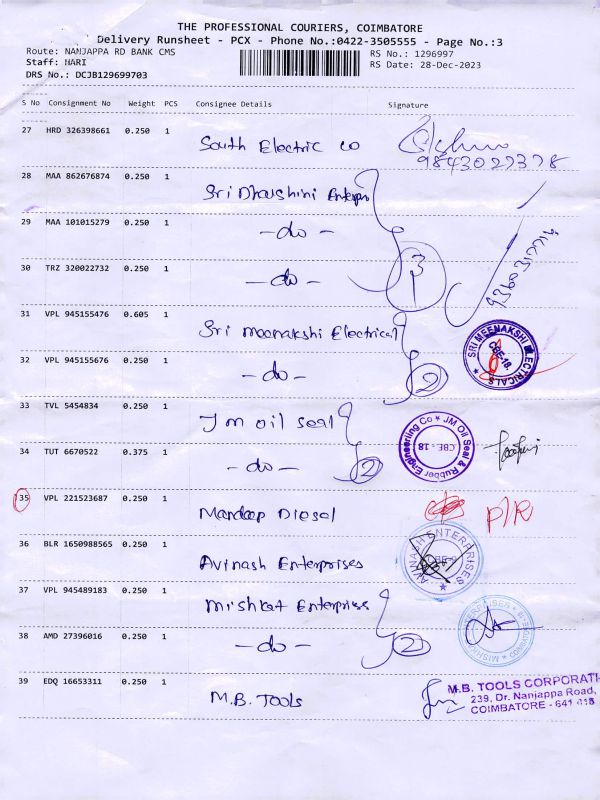 THE PROFESSIONAL COURIERS, COIMBATORE
Delivery Runsheet - PCX - Phone No.:0422-3505555 - Page No.:3
Route: NANJAPPA RD BANK CMS
RS No.: 1296997
Staff: HARI
RS Date: 28-Dec-2023
DRS No.: DCJB129699703
S No Consignment No Weight PCS Consignee Details Signature
27 HRD 326398661 0.250 1 South Electric co
9843027378
28 MAA 862676874 0.250 1 Sri Dharshini Enterpri
29 MAA 101015279 0.250 1 -do-
30 TRZ 320022732 0.250 1 -do- 3
31 VPL 945155476 0.605 1 Sri meenakshi Electrical
SRI MEENAKSHI ELECTRICALS CBE-18.
32 VPL 945155676 0.250 1 -do- 2
33 TVL 5454834 0.250 1 Jm oil seal
JM Oil Seal & Rubber Engineering Co CBE - 18
34 TUT 6670522 0.375 1 -do- 2
35 VPL 221523687 0.250 1 Mandeep Diesel P/R
36 BLR 1650988565 0.250 1 Avinash Enterprises
AVINASH ENTERPRISES
37 VPL 945489183 0.250 1 Mishkat Enterprises
38 AMD 27396016 0.250 1 -do- 2
39 EDQ 16653311 0.250 1 M.B. Tools
M.B. TOOLS CORPORATI
239, Dr. Nanjappa Road,
COIMBATORE - 641 018